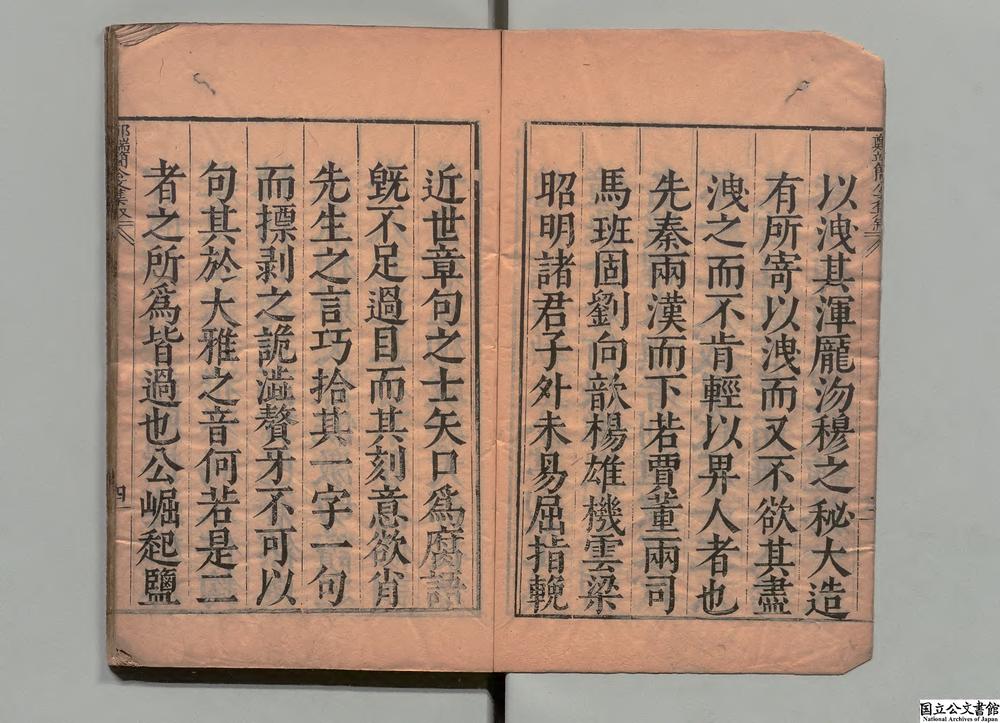 以洩其渾龎沕穆之秘大造
有所寄以洩而又不欲其盡
洩之而不肯輕以畀人者也
先秦兩漢而下若賈董兩司
馬班固劉向歆楊雄機雲梁
昭明諸君子外未易屈指輓
近世章句之士矢口爲腐語
旣不足過目而其刻意欲肖
先生之言巧拾其一字一句
而摽剥之詭澁贅牙不可以
句其於大雅之音何若是二
者之所爲皆過也公崛起鹽
四
国立公文書館
National Archives of Japan